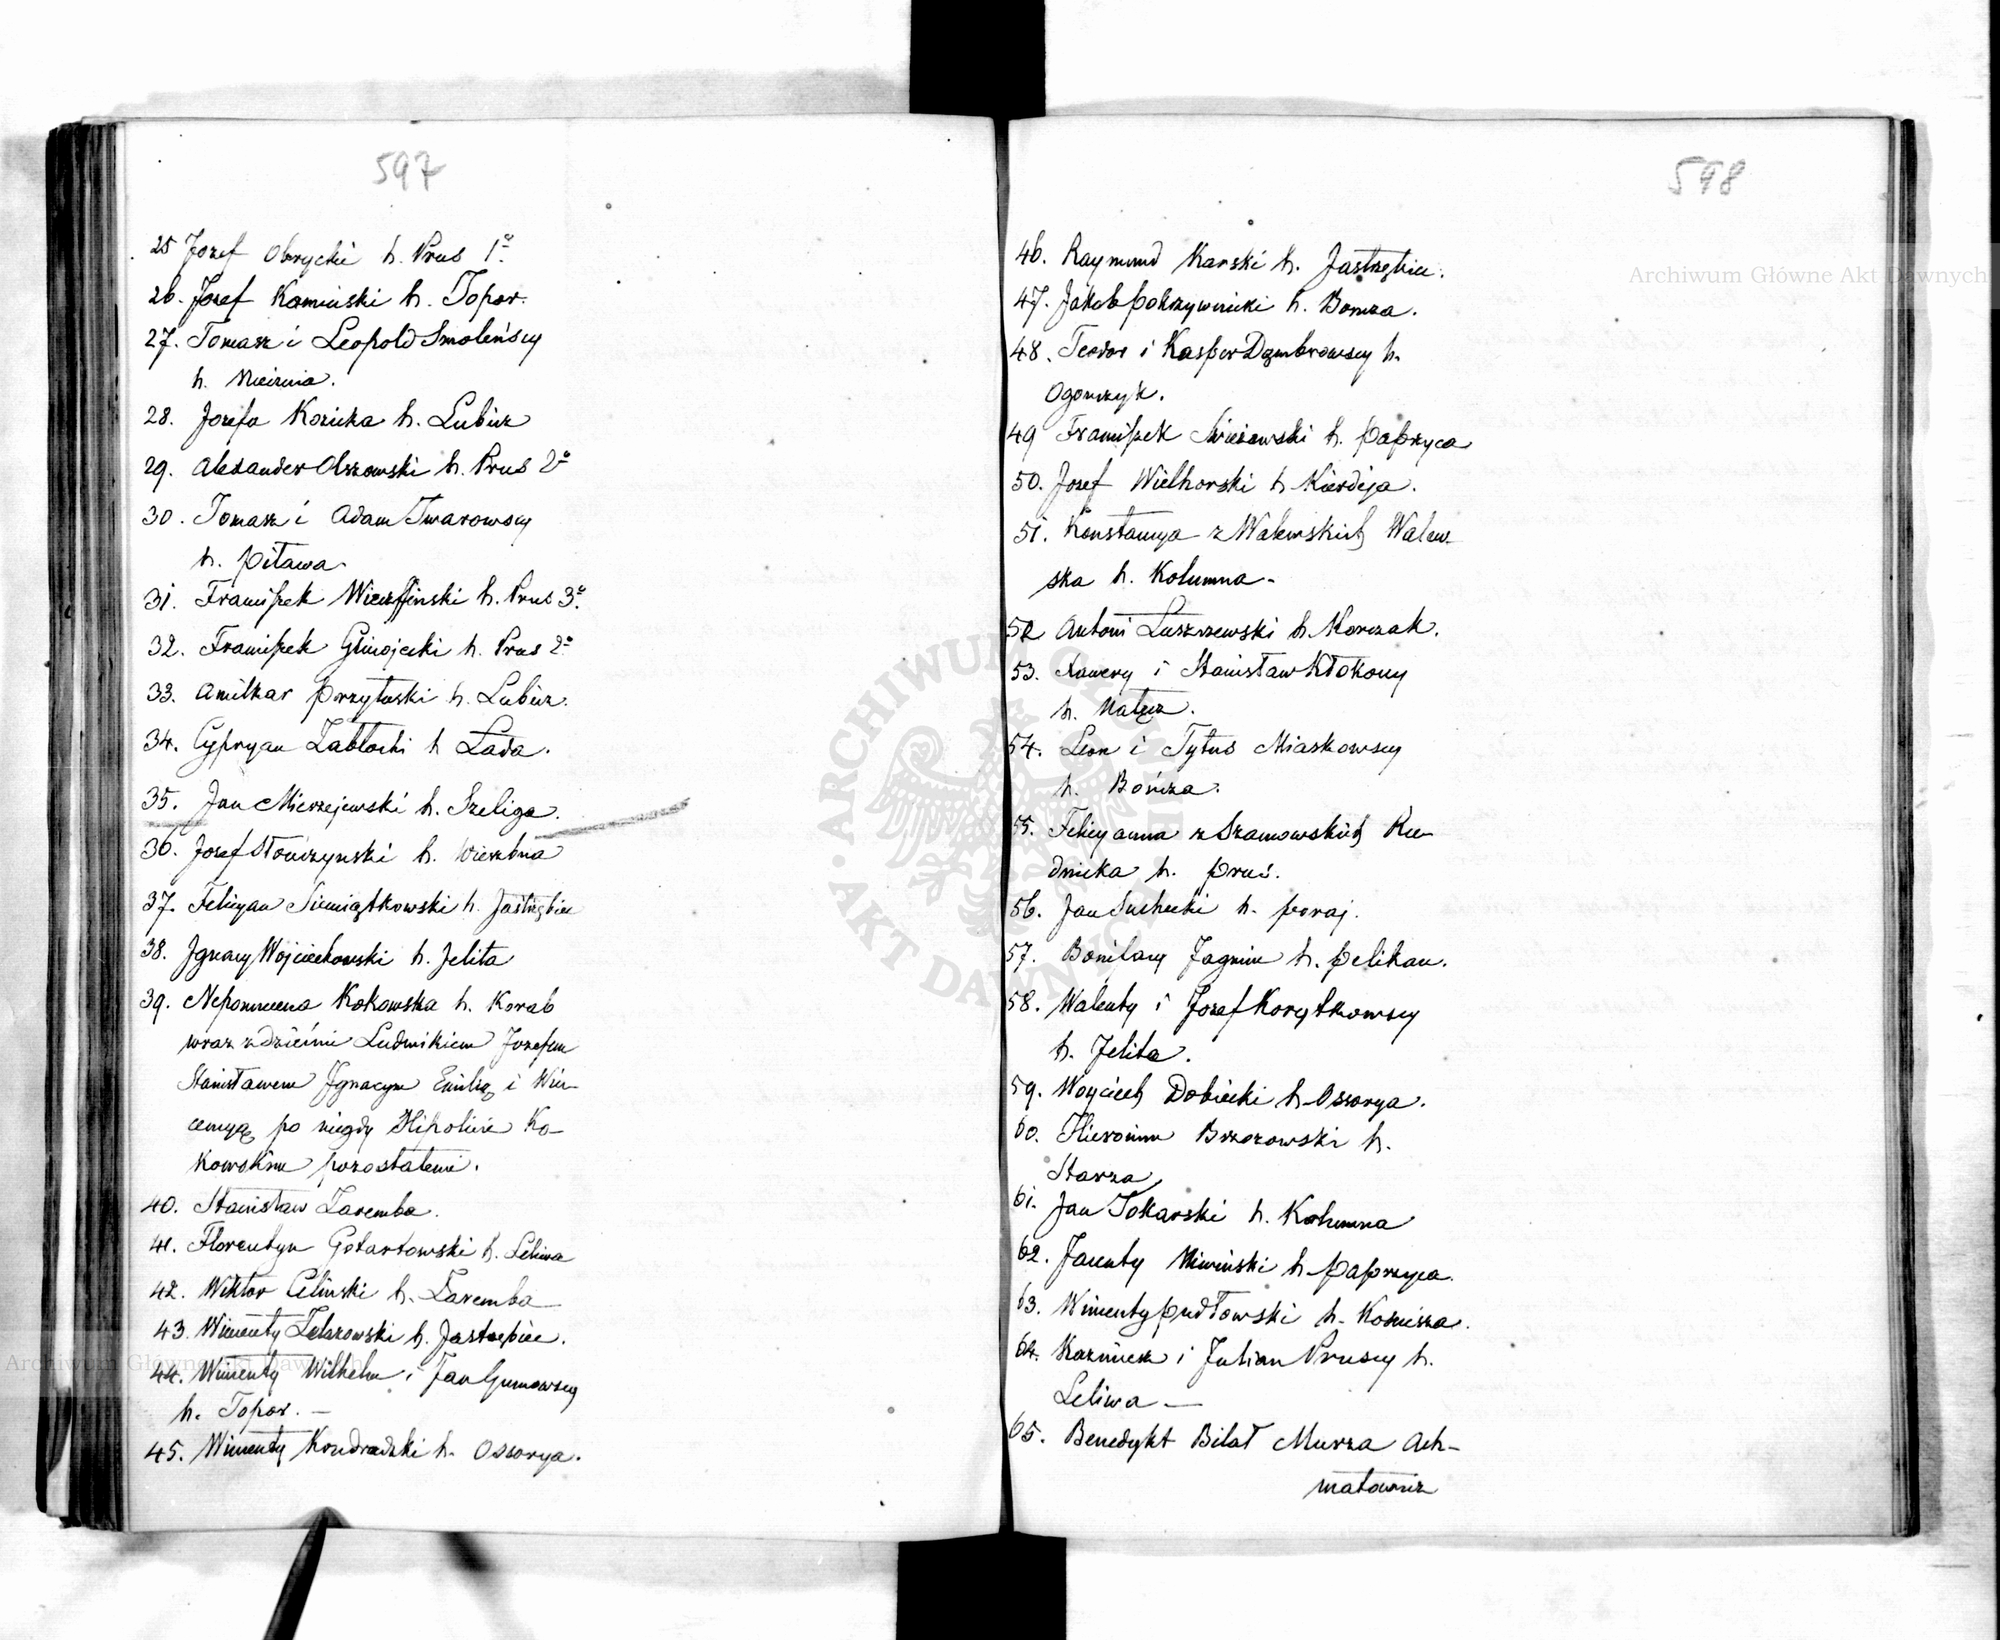 597
25 Jozef Obrycki h. Prus 1º
26. Jozef Kaminski h. Topor.
27. Tomasz i Leopold Smoleńscy
h. Nieczuia.
28. Jozefa Kozicka h. Lubicz
29. Alexander Olszowski h. Prus 2º
30. Tomasz i Adam Twarowscy
h. Pilawa
31. Franciszek h. Prus 3º
32. Franciszek Gliniojecki h. Prus 2º
33. Amilkar Przyłuski h. Lubicz.
34. Cypryan Zabłocki h Łada.
35. Jan Mierzejewski h. Szeliga.
36. Jozef Słończynski h. Wieszbna
37. Felicyan Siemiątkowski h. Jastrzębiec
38. Ignacy Wojciechowski h. Jelita
39. Nepomucena Kokowska h. Korab
wraz z dziećmi Ludwikiem Jozefem
Stanisławem Ignacym Emilią i Win-
centyą po niegdy Hipolicie Ko-
kowskim pozostałemi.
40. Stanisław Zaremba.
41. Florentyn Gotartowski h. Leliwa
42. Wiktor Celinski h. Zaremba
43. Wincenty h. Jastrzębiec.
44. Wincenty Wilhelm i Jan Gumowscy
h. Topor. —
45. Wincenty Kondradzki h. Ossorya.
598
46. Raymund Karski h. Jastrzębiec.
47. Jakob Pokrzywnicki h. Boncza.
48. Teodor i Kasper Dąmbrowscy h.
Ogonczyk.
49 Franciszek Świeżawski h. Paprzyca
50. Jozef Wielhorski h Kierdeja.
51. Konstancya z Walewskich Walew-
ska h. Kolumna -
52 Antoni Łuszczewski h. Korczak.
53. Xawery i Stanisław Kłokoccy
h. Nałęcz.
54. Leon i Tytus Miaskowscy
h. Bończa.
55. Felicyanna z Szamowskich Ru-
dnicka h. Prus.
56. Jan Suchecki h. Poraj.
57. Bonifacy Jagmin h. Pelikan.
58. Walenty i Jozef Korytkowscy
h. Jelita.
59. Woyciech Dobiecki h. Ossorya.
60. Hieronim Brzozowski h.
Starza
61. Jan Tokarski h. Kolumna
62. Jacenty Niwinski h. Paprzyca.
63. Wincenty Pudłowski h. Kosciesza.
64. Kazmierz i Julian Pruscy h.
Leliwa —
65. Benedykt Bilał Murza Ach-
matowicz
ARCHIWUM GŁÓWNE AKT DAWNYCH
Archiwum Główne Akt Dawnych
Archiwum Główne Akt Dawnych